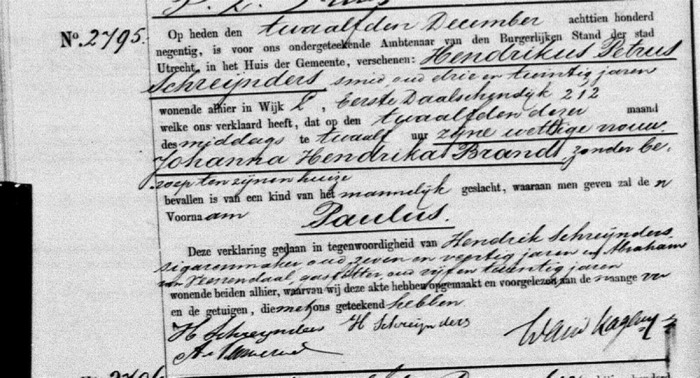 No. 2795.
Op heden den twaalfden December achttien honderd
negentig, is voor ons ondergeteekende Ambtenaar van den Burgerlijken Stand der stad
Utrecht, in het Huis der Gemeente, verschenen: Hendrikus Petrus
Schreijnders, smid, oud drie en twintig jaren
wonende alhier in Wijk L, eerste Daalschendijk 212
welke ons verklaard heeft, dat op den twaalfden dezer maand
des middags te twaalf uur zijne wettige vrouw
Johanna Hendrika Brands, zonder be-
roep ten zijnen huize
bevallen is van een kind van het mannelijk geslacht, waaraan men geven zal de n
Voornaam Paulus.
Deze verklaring gedaan in tegenwoordigheid van Hendrik Schreijnders
sigarenmaker, oud zeven en veertig jaren en Abraham
van oud vijf en twintig jaren
wonende beiden alhier, waarvan wij deze akte hebben opgemaakt en voorgelezen aan de
en de getuigen, die met ons geteekend hebben
H Schreynders H Schreijnders